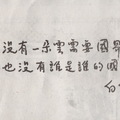 沒有一朵雲需要國界
也沒有誰是誰的國